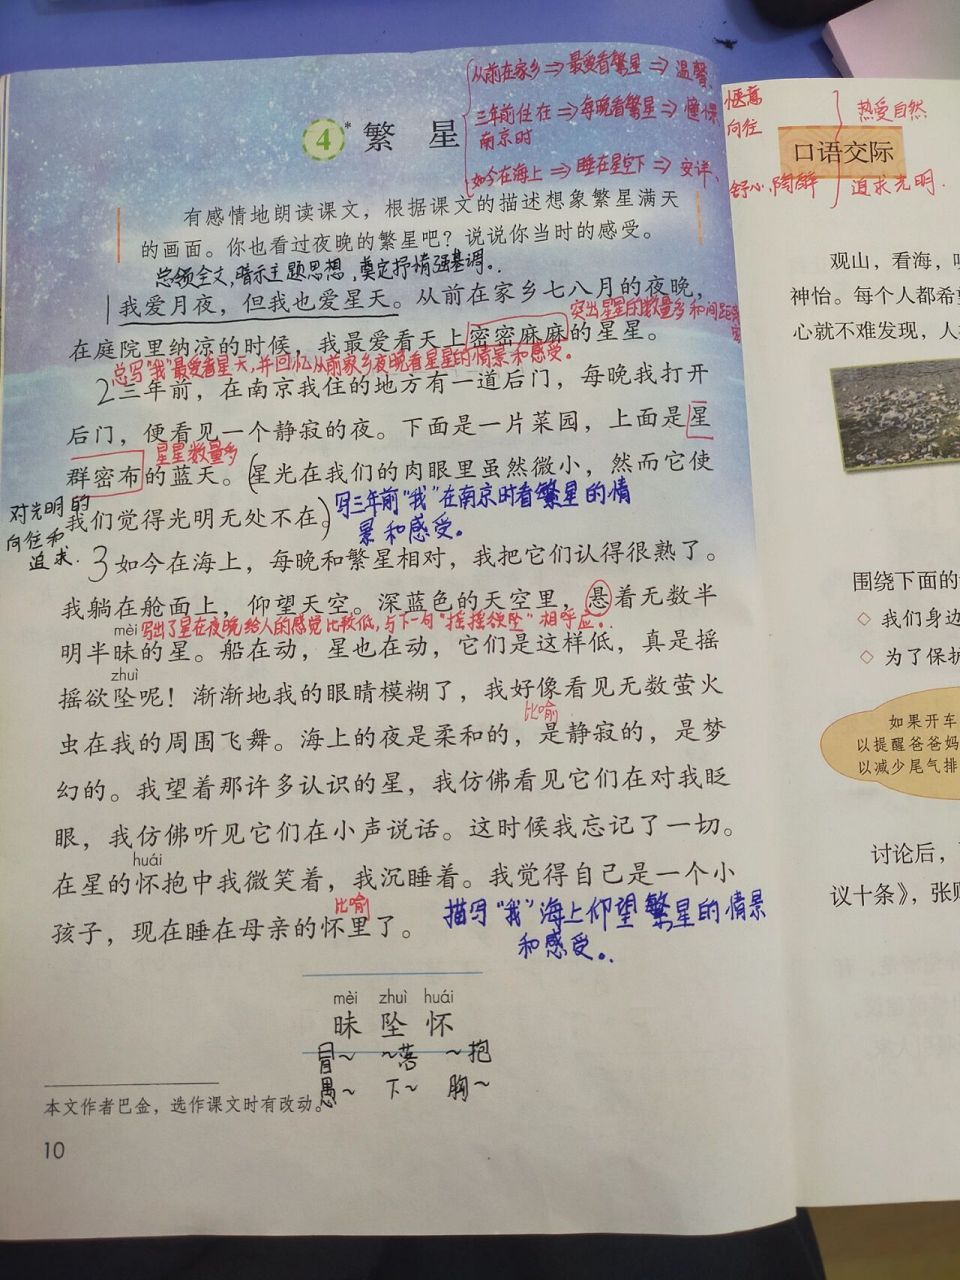 从前在家乡⇒最爱看繁星⇒温馨、惬意
三年前住在⇒每晚看繁星⇒憧憬、向往
南京时
如今在海上⇒睡在星空下⇒安详、舒心、陶醉
热爱自然
追求光明.
4* 繁 星
有感情地朗读课文，根据课文的描述想象繁星满天
的画面。你也看过夜晚的繁星吧？说说你当时的感受。
总领全文,暗示主题思想,奠定抒情强基调。
1我爱月夜，但我也爱星天。从前在家乡七八月的夜晚，
突出星星的数量多和间距
在庭院里纳凉的时候，我最爱看天上密密麻麻的星星。
总写"我"最爱看星天,并回忆从前家乡夜晚看星星的情景和感受。
2三年前，在南京我住的地方有一道后门，每晚我打开
后门，便看见一个静寂的夜。下面是一片菜园，上面是星
星星数量多
群密布的蓝天。(星光在我们的肉眼里虽然微小，然而它使
我们觉得光明无处不在。)
对光明的
向往和
追求.
写三年前"我"在南京时看繁星的情
景和感受。
3如今在海上，每晚和繁星相对，我把它们认得很熟了。
我躺在舱面上，仰望天空。深蓝色的天空里，悬着无数半
写出了星在夜晚给人的感觉比较低,与下一句"摇摇欲坠"相呼应。
mèi
明半昧的星。船在动，星也在动，它们是这样低，真是摇
zhuì
摇欲坠呢！渐渐地我的眼睛模糊了，我好像看见无数萤火
比喻
虫在我的周围飞舞。海上的夜是柔和的，是静寂的，是梦
幻的。我望着那许多认识的星，我仿佛看见它们在对我眨
眼，我仿佛听见它们在小声说话。这时候我忘记了一切。
huái
在星的怀抱中我微笑着，我沉睡着。我觉得自己是一个小
比喻
孩子，现在睡在母亲的怀里了。
描写"我"海上仰望繁星的情景
和感受。
mèi zhuì huái
昧 坠 怀
冒~ ~落 ~抱
愚~ 下~ 胸~
本文作者巴金，选作课文时有改动。
10
口语交际
观山，看海，
神怡。每个人都希
心就不难发现，人
围绕下面的
◇ 我们身边
◇ 为了保护
如果开车
以提醒爸爸妈
以减少尾气排
讨论后，
议十条》，张贴